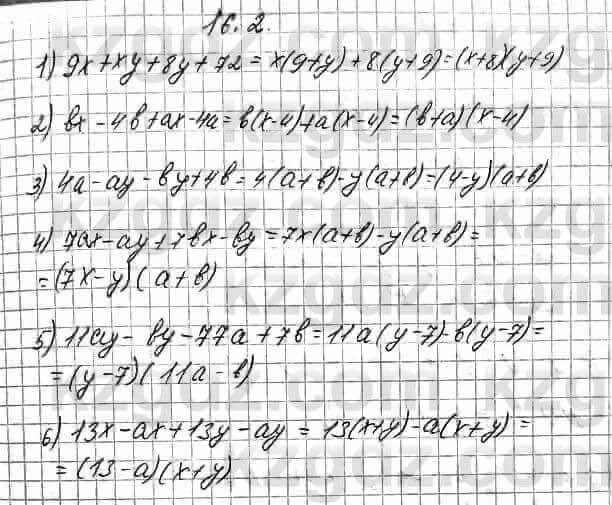 16.2.
1) 9x+xy+8y+72=x(9+y)+8(y+9)=(x+8)(y+9)
2) вx-4в+ax-4a=в(x-4)+a(x-4)=(в+a)(x-4)
3) 4a-ay-вy+4в=4(a+в)-y(a+в)=(4-y)(a+в)
4) 7ax-ay+7вx-вy=7x(a+в)-y(a+в)=
=(7x-y)(a+в)
5) 11ay-вy-77a+7в=11a(y-7)-в(y-7)=
=(y-7)(11a-в)
6) 13x-ax+13y-ay=13(x+y)-a(x+y)=
=(13-a)(x+y)